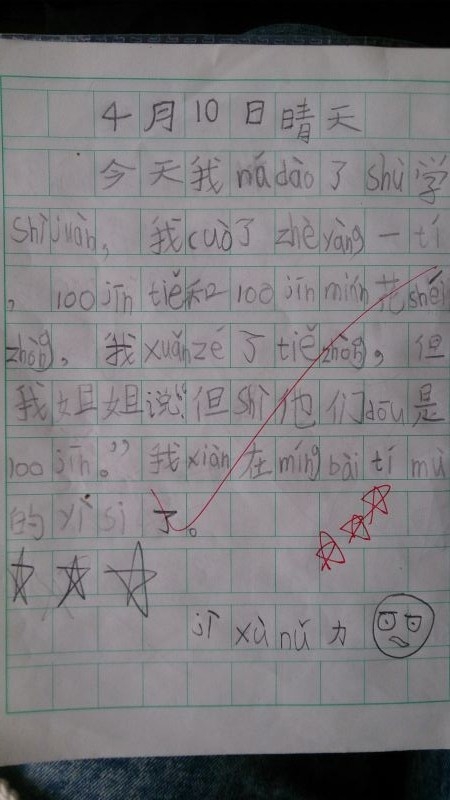 4月10日晴天
今天我nádào了shù学
shìjuàn，我cuò了zhèyàng一tí
，100jīntiě和100jīnmián花shéi
zhòng，我xuǎnzé了tiězhòng，但
我姐姐说“但shì他们dōu是
100jīn。”我xiàn在míngbáitímù
的yìsi了。
jìxùnǔ力